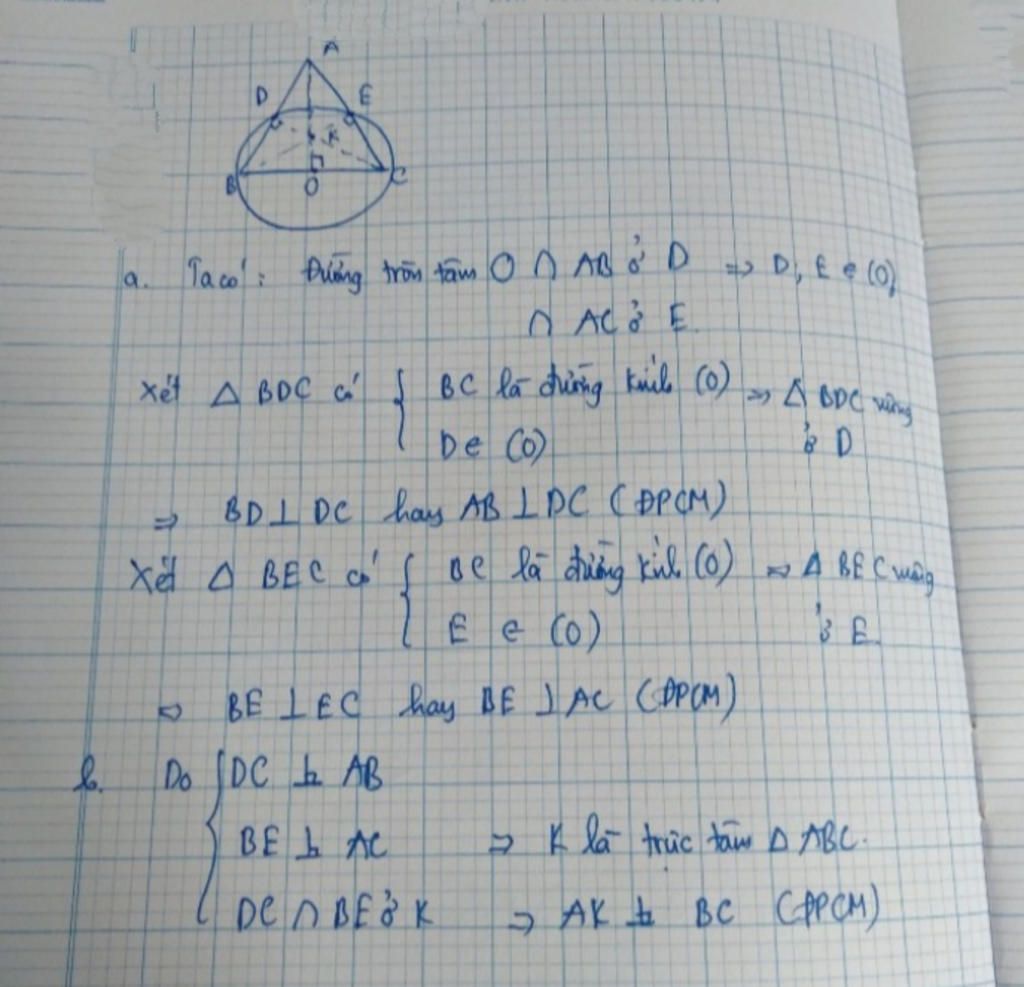 A
D E
K
B O C
a. Ta có: Đường tròn tâm O ∩ AB ở D => D, E ∈ (O)
∩ AC ở E.
Xét Δ BDC có { BC là đường kính (O) => Δ BDC vuông
D ∈ (O) ở D
=> BD ⊥ DC hay AB ⊥ DC (ĐPCM)
Xét Δ BEC có { BC là đường kính (O) => Δ BEC vuông
E ∈ (O) ở E
=> BE ⊥ EC hay BE ⊥ AC (ĐPCM)
b. Do { DC ⊥ AB
BE ⊥ AC => K là trực tâm Δ ABC.
DC ∩ BE ở K => AK ⊥ BC (ĐPCM)